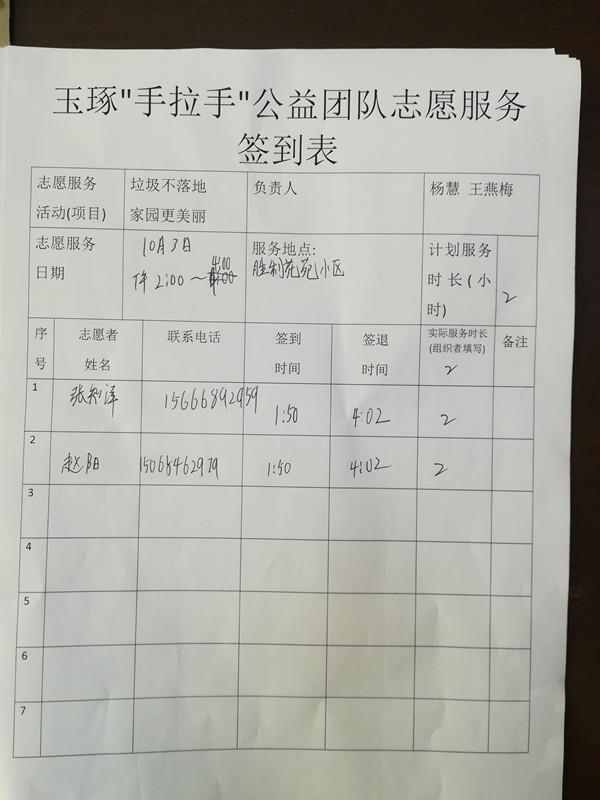 玉琢"手拉手"公益团队志愿服务
签到表
志愿服务 垃圾不落地 负责人 杨慧 王燕梅
活动(项目) 家园更美丽
志愿服务 10月3日 服务地点: 计划服务
日期 下午 2:00～4:00 胜利花苑小区 时长(小
时) 2
序 志愿者 联系电话 签到 签退 实际服务时长 备注
号 姓名 时间 时间 (组织者填写)
2
1 张知泽 15666892959 1:50 4:02 2
2 赵阳 15065462979 1:50 4:02 2
3
4
5
6
7